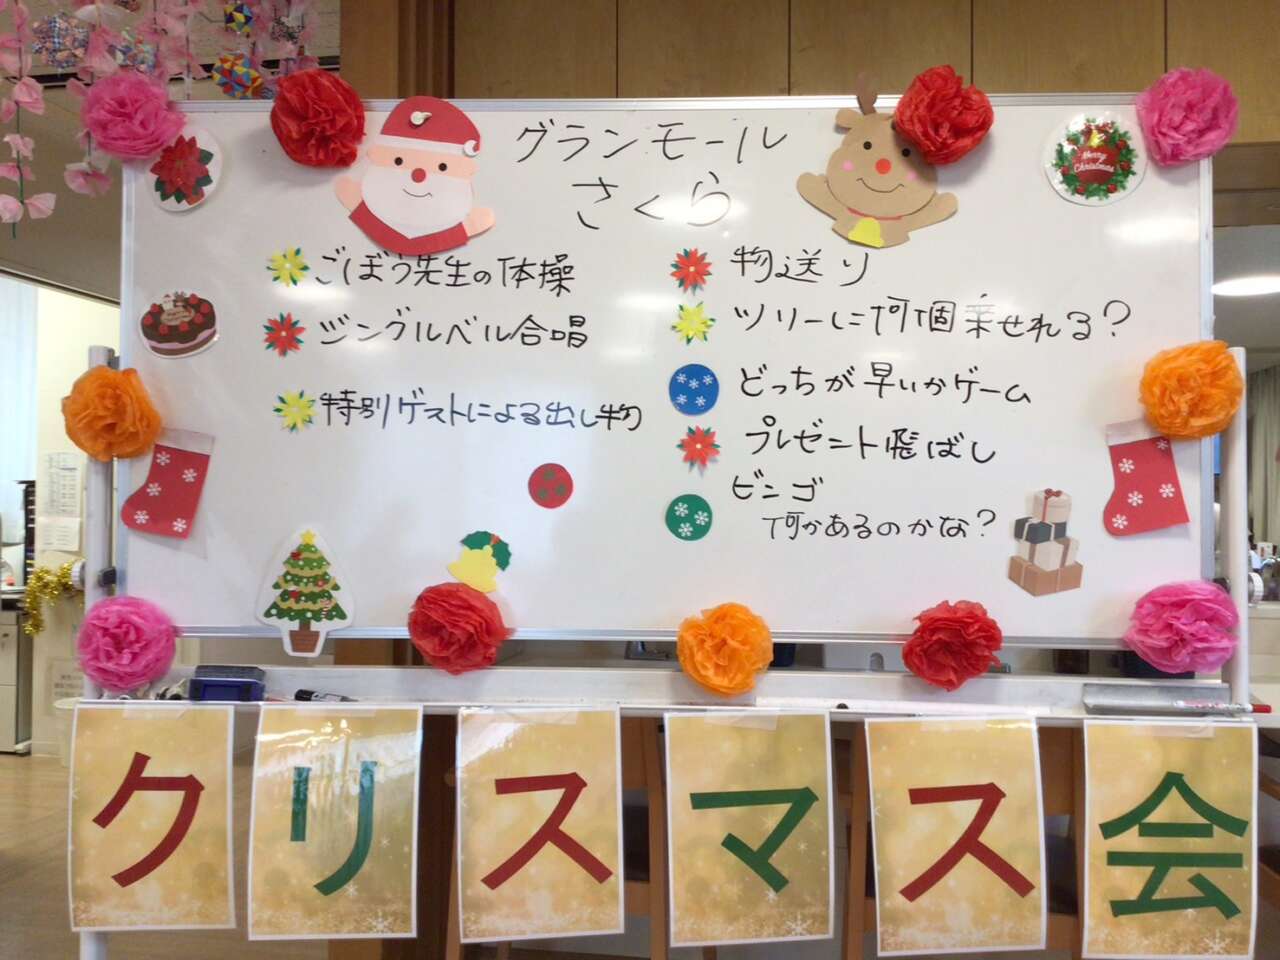 グランモール
さくら
Merry
Christmas
ごぼう先生の体操
ジングルベル合唱
特別ゲストによる出し物
物送り
ツリーに何個乗せれる?
どっちが早いかゲーム
プレゼント飛ばし
ビンゴ
何かあるのかな?
クリスマス会